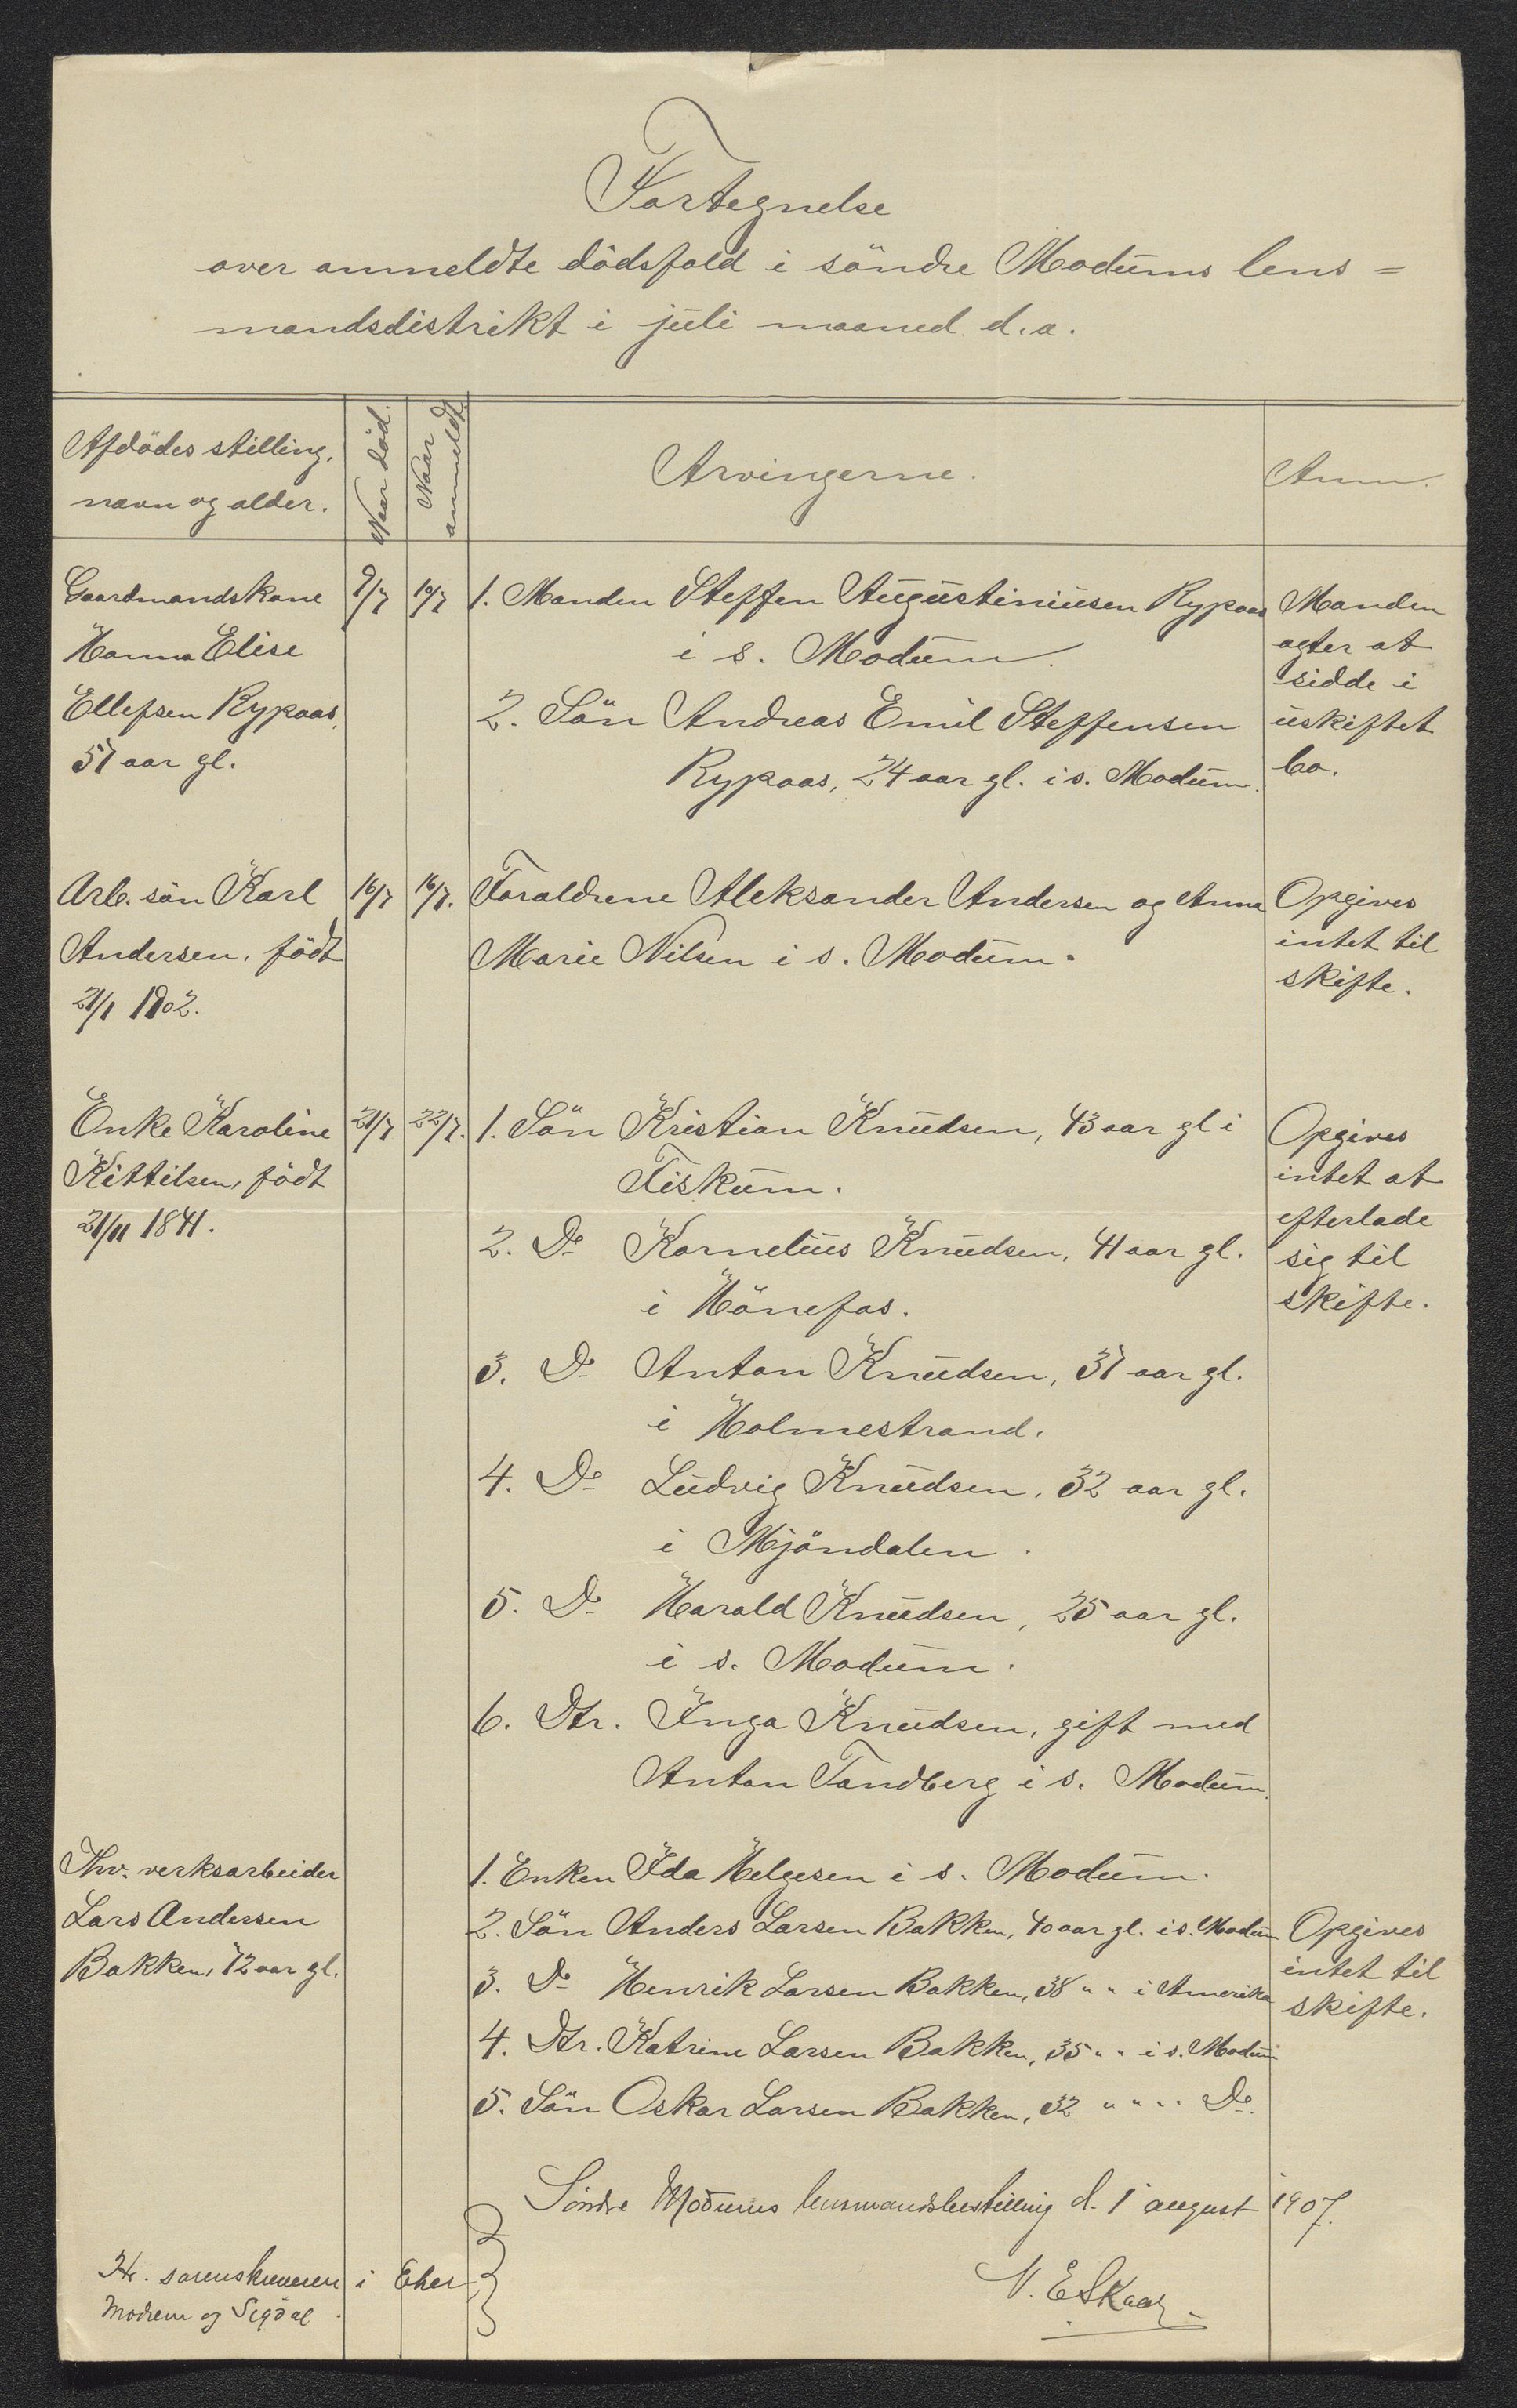 Fortegnelse
over anmeldte dödsfald i söndre Modums lens=
mandsdistrikt i juli maaned d.a.
Afdödes stilling,
navn og alder.
Naar död.
Naar
anmeldt.
Arvingerne.
Anm.
Gaardmandskone
Hanna Elise
Ellefsen Rypaas,
57 aar gl.
9/7
10/7
1. Manden Steffen Augustiniusen Rypaas
i s. Modum.
2. Sön Andreas Emil Steffensen
Rypaas, 24 aar gl. i s. Modum.
Manden
agter at
sidde i
uskiftet
bo.
Arb. sön Karl
Andersen, födt
21/1 1902.
16/7
16/7.
Foraldrene Aleksander Andersen og Anna
Marie Nilsen i s. Modum.
Opgives
intet til
skifte.
Enke Karoline
Kittilsen, födt
21/11 1841.
21/7
22/7.
1. Sön Kristian Knudsen, 43 aar gl i
Fiskum.
2. Do Kornelius Knudsen, 41 aar gl.
i Hönefos.
3. Do Anton Knudsen, 37 aar gl.
i Holmestrand.
4. Do Ludvig Knudsen, 32 aar gl.
i Mjöndalen.
5. Do Harald Knudsen, 25 aar gl.
i s. Modum.
6. Dtr. Inga Knudsen, gift med
Anton Tandberg i s. Modum.
Opgives
intet at
efterlade
sig til
skifte.
Fhv. verksarbeider
Lars Andersen
Bakken, 72 aar gl.
1. Enken Ida Helgesen i s. Modum.
2. Sön Anders Larsen Bakken, 40 aar gl. i s. Modum
3. Do Henrik Larsen Bakken, 38 " " i Amerika
4. Dtr. Katrine Larsen Bakken, 35 " " i s. Modum
5. Sön Oskar Larsen Bakken, 32 " " " " Do.
Opgives
intet til
skifte.
Söndre Modums lensmandsbestilling d. 1 august 1907.
N. E Skaar
Hr. sorenskriveren i Eker
Modum og Sigdal.